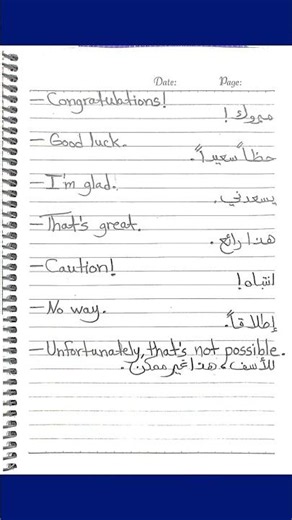 Date: Page:
— Congratulations!
مبروك!
— Good luck.
حظاً سعيداً.
— I'm glad.
يسعدني.
— That's great.
هذا رائع.
— Caution!
انتباه!
— No way.
إطلاقاً.
— Unfortunately, that's not possible.
للأسف، هذا غير ممكن.